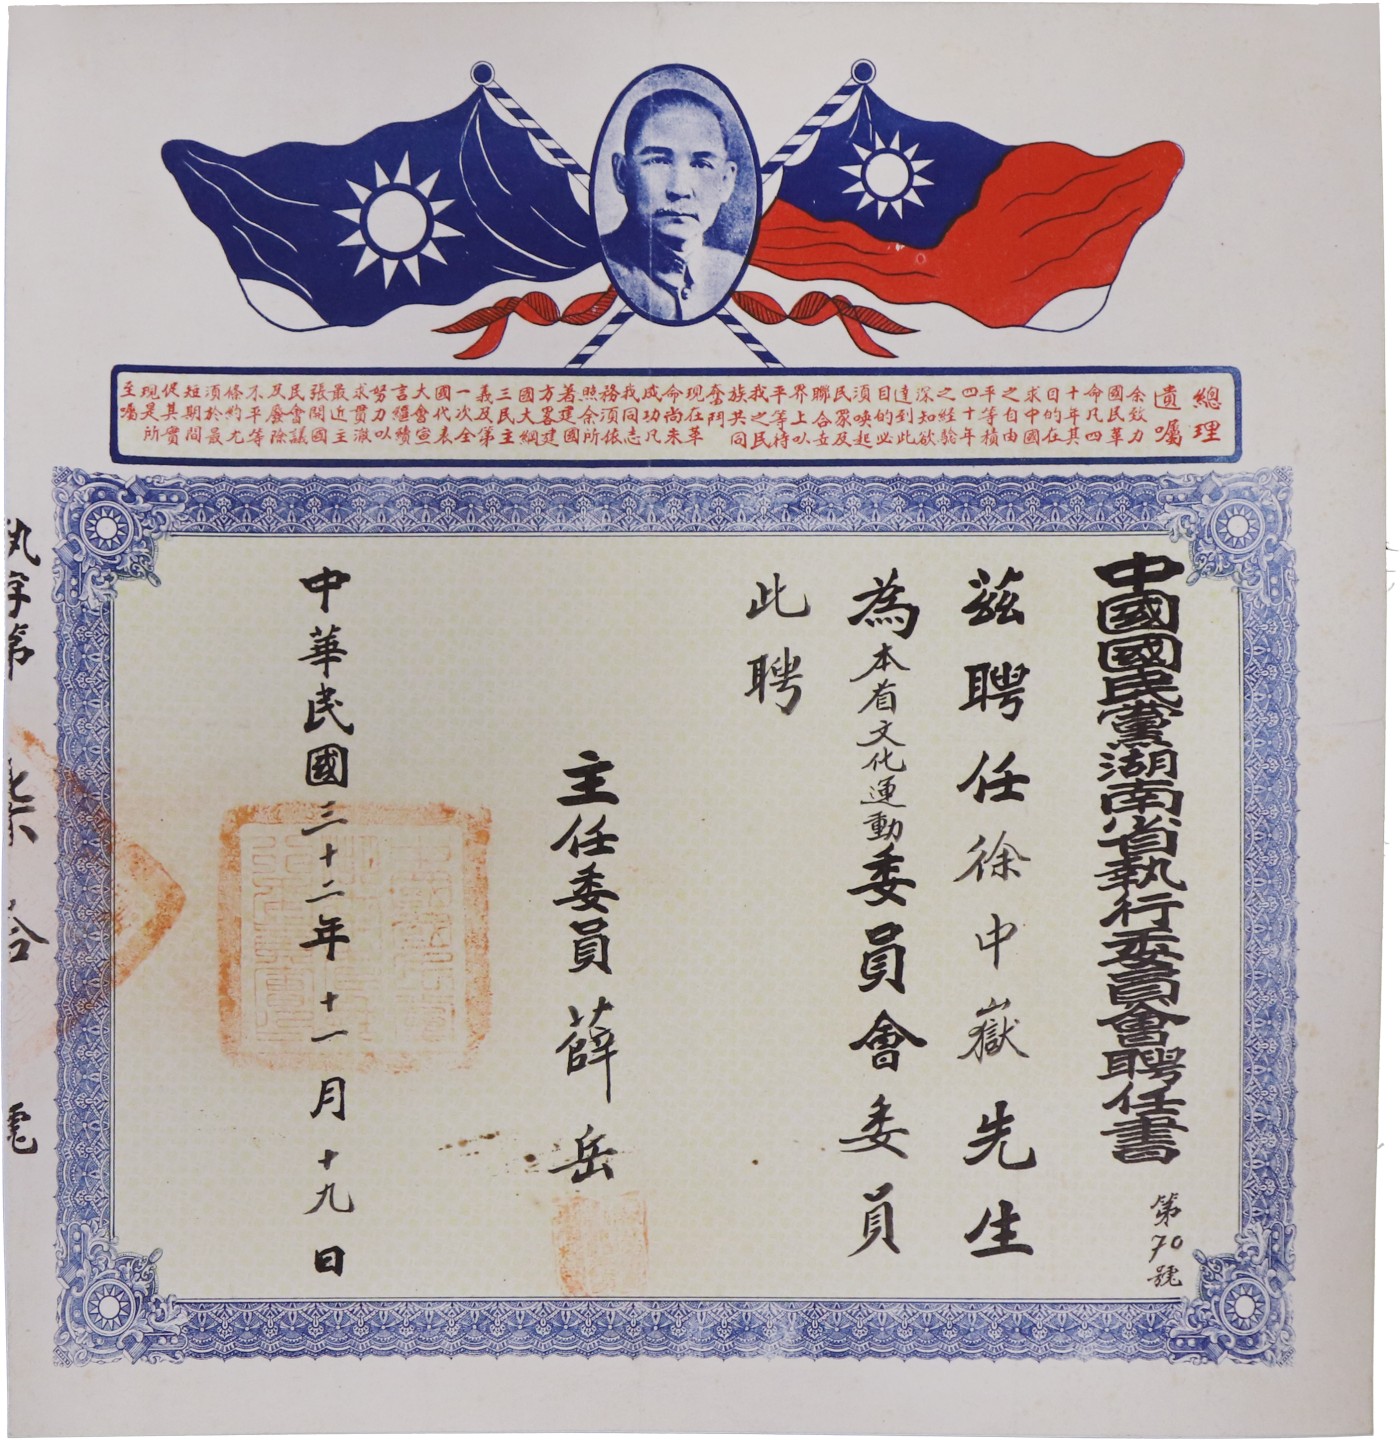 總理
遺囑
余致力
國民革
命凡四
十年其
目的在
求中國
之自由
平等積
四十年
之經驗
深知欲
達到此
目的必
須喚起
民眾及
聯合世
界上以
平等待
我之民
族共同
奮鬥
現在革
命尚未
成功凡
我同志
務須依
照余所
著建國
方畧建
國大綱
三民主
義及第
一次全
國代表
大會宣
言繼續
努力以
求貫澈
最近主
張開國
民會議
及廢除
不平等
條約尤
須於最
短期間
促其實
現是所
至囑
中國國民黨湖南省執行委員會聘任書
第70號
茲聘任徐中嶽先生
為本省文化運動委員會委員
此聘
主任委員薛岳
中華民國三十二年十一月十九日
執字第柒拾號